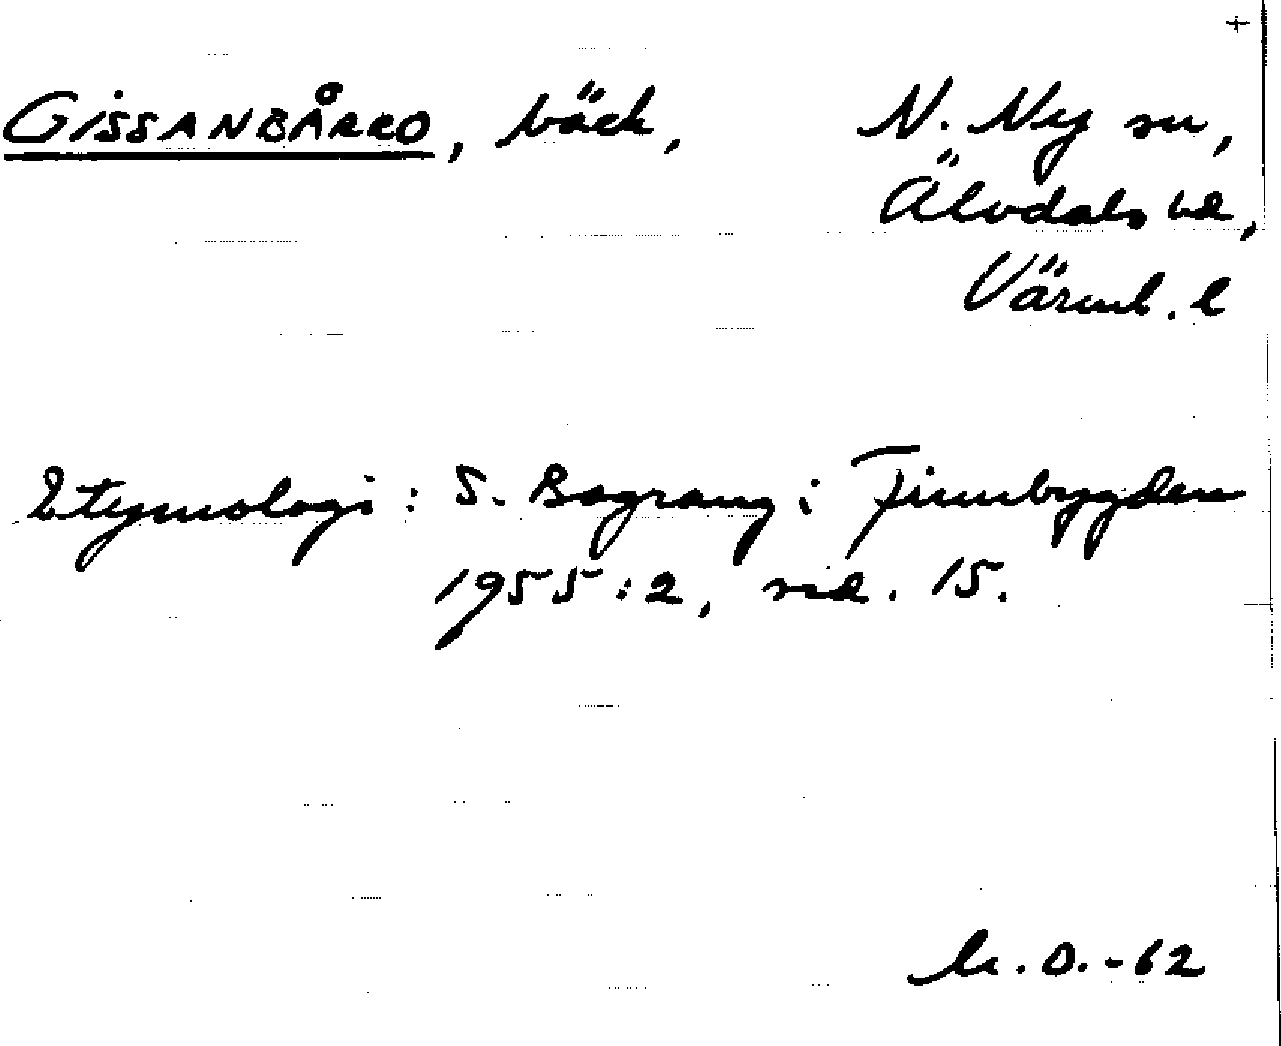 +
GISSANBÅRRO, bäck, N. Ny sn,
Älvdals hd,
Värml. l
Etymologi: S. Bograng i Finnbygden
1955:2, sid. 15.
O. -62